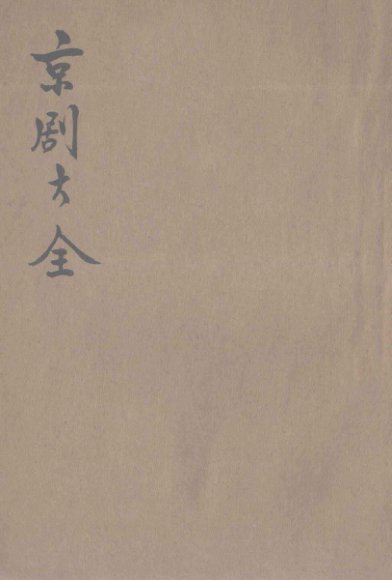 京剧大全